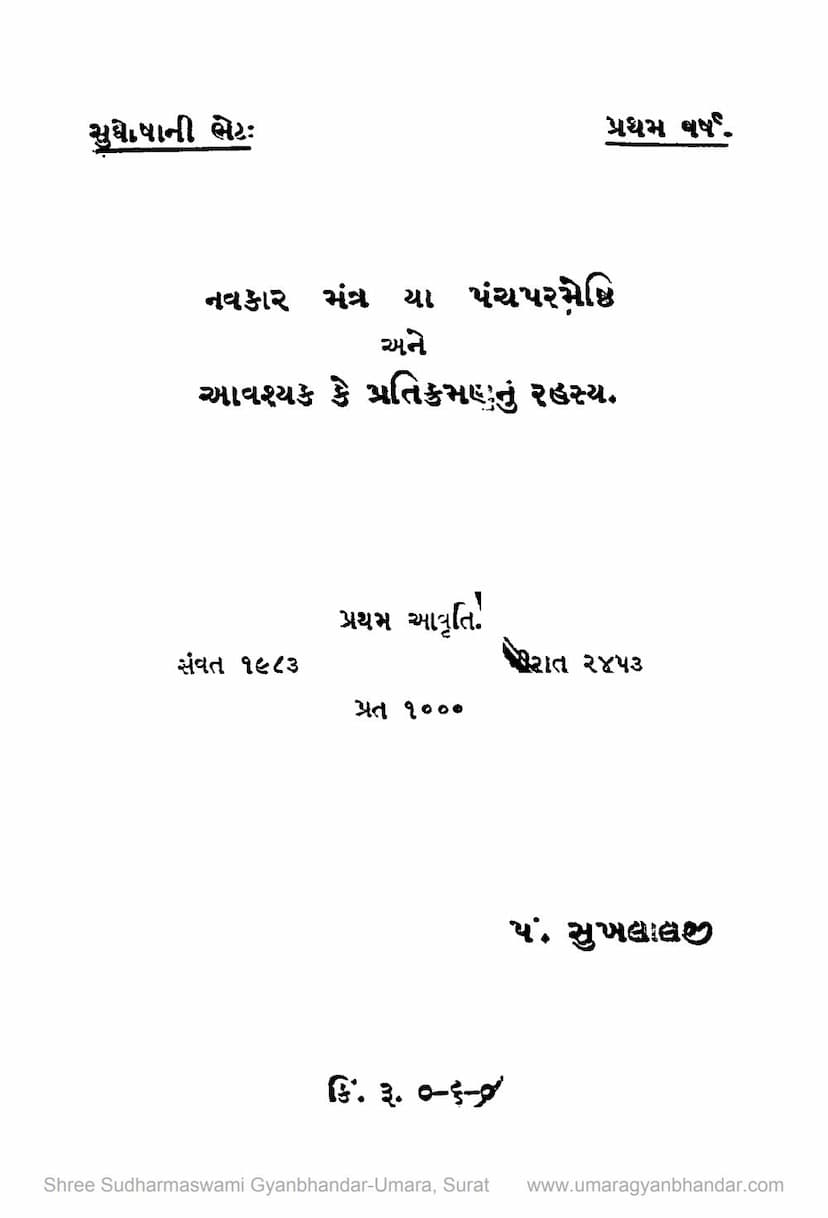 સુઘોષાની ભેટઃ પ્રથમ વર્ષ.
નવકાર મંત્ર યા પંચપરમેષ્ઠિ
અને
આવશ્યક કે પ્રતિક્રમણનું રહસ્ય.
પ્રથમ આવૃતિ.
સંવત ૧૯૮૩ વીરાત ૨૪૫૩
પ્રત ૧૦૦૦
પં. સુખલાલજી
કિં. રૂ. ૦-૬-૦
Shree Sudharmaswami Gyanbhandar-Umara, Surat www.umaragyanbhandar.com